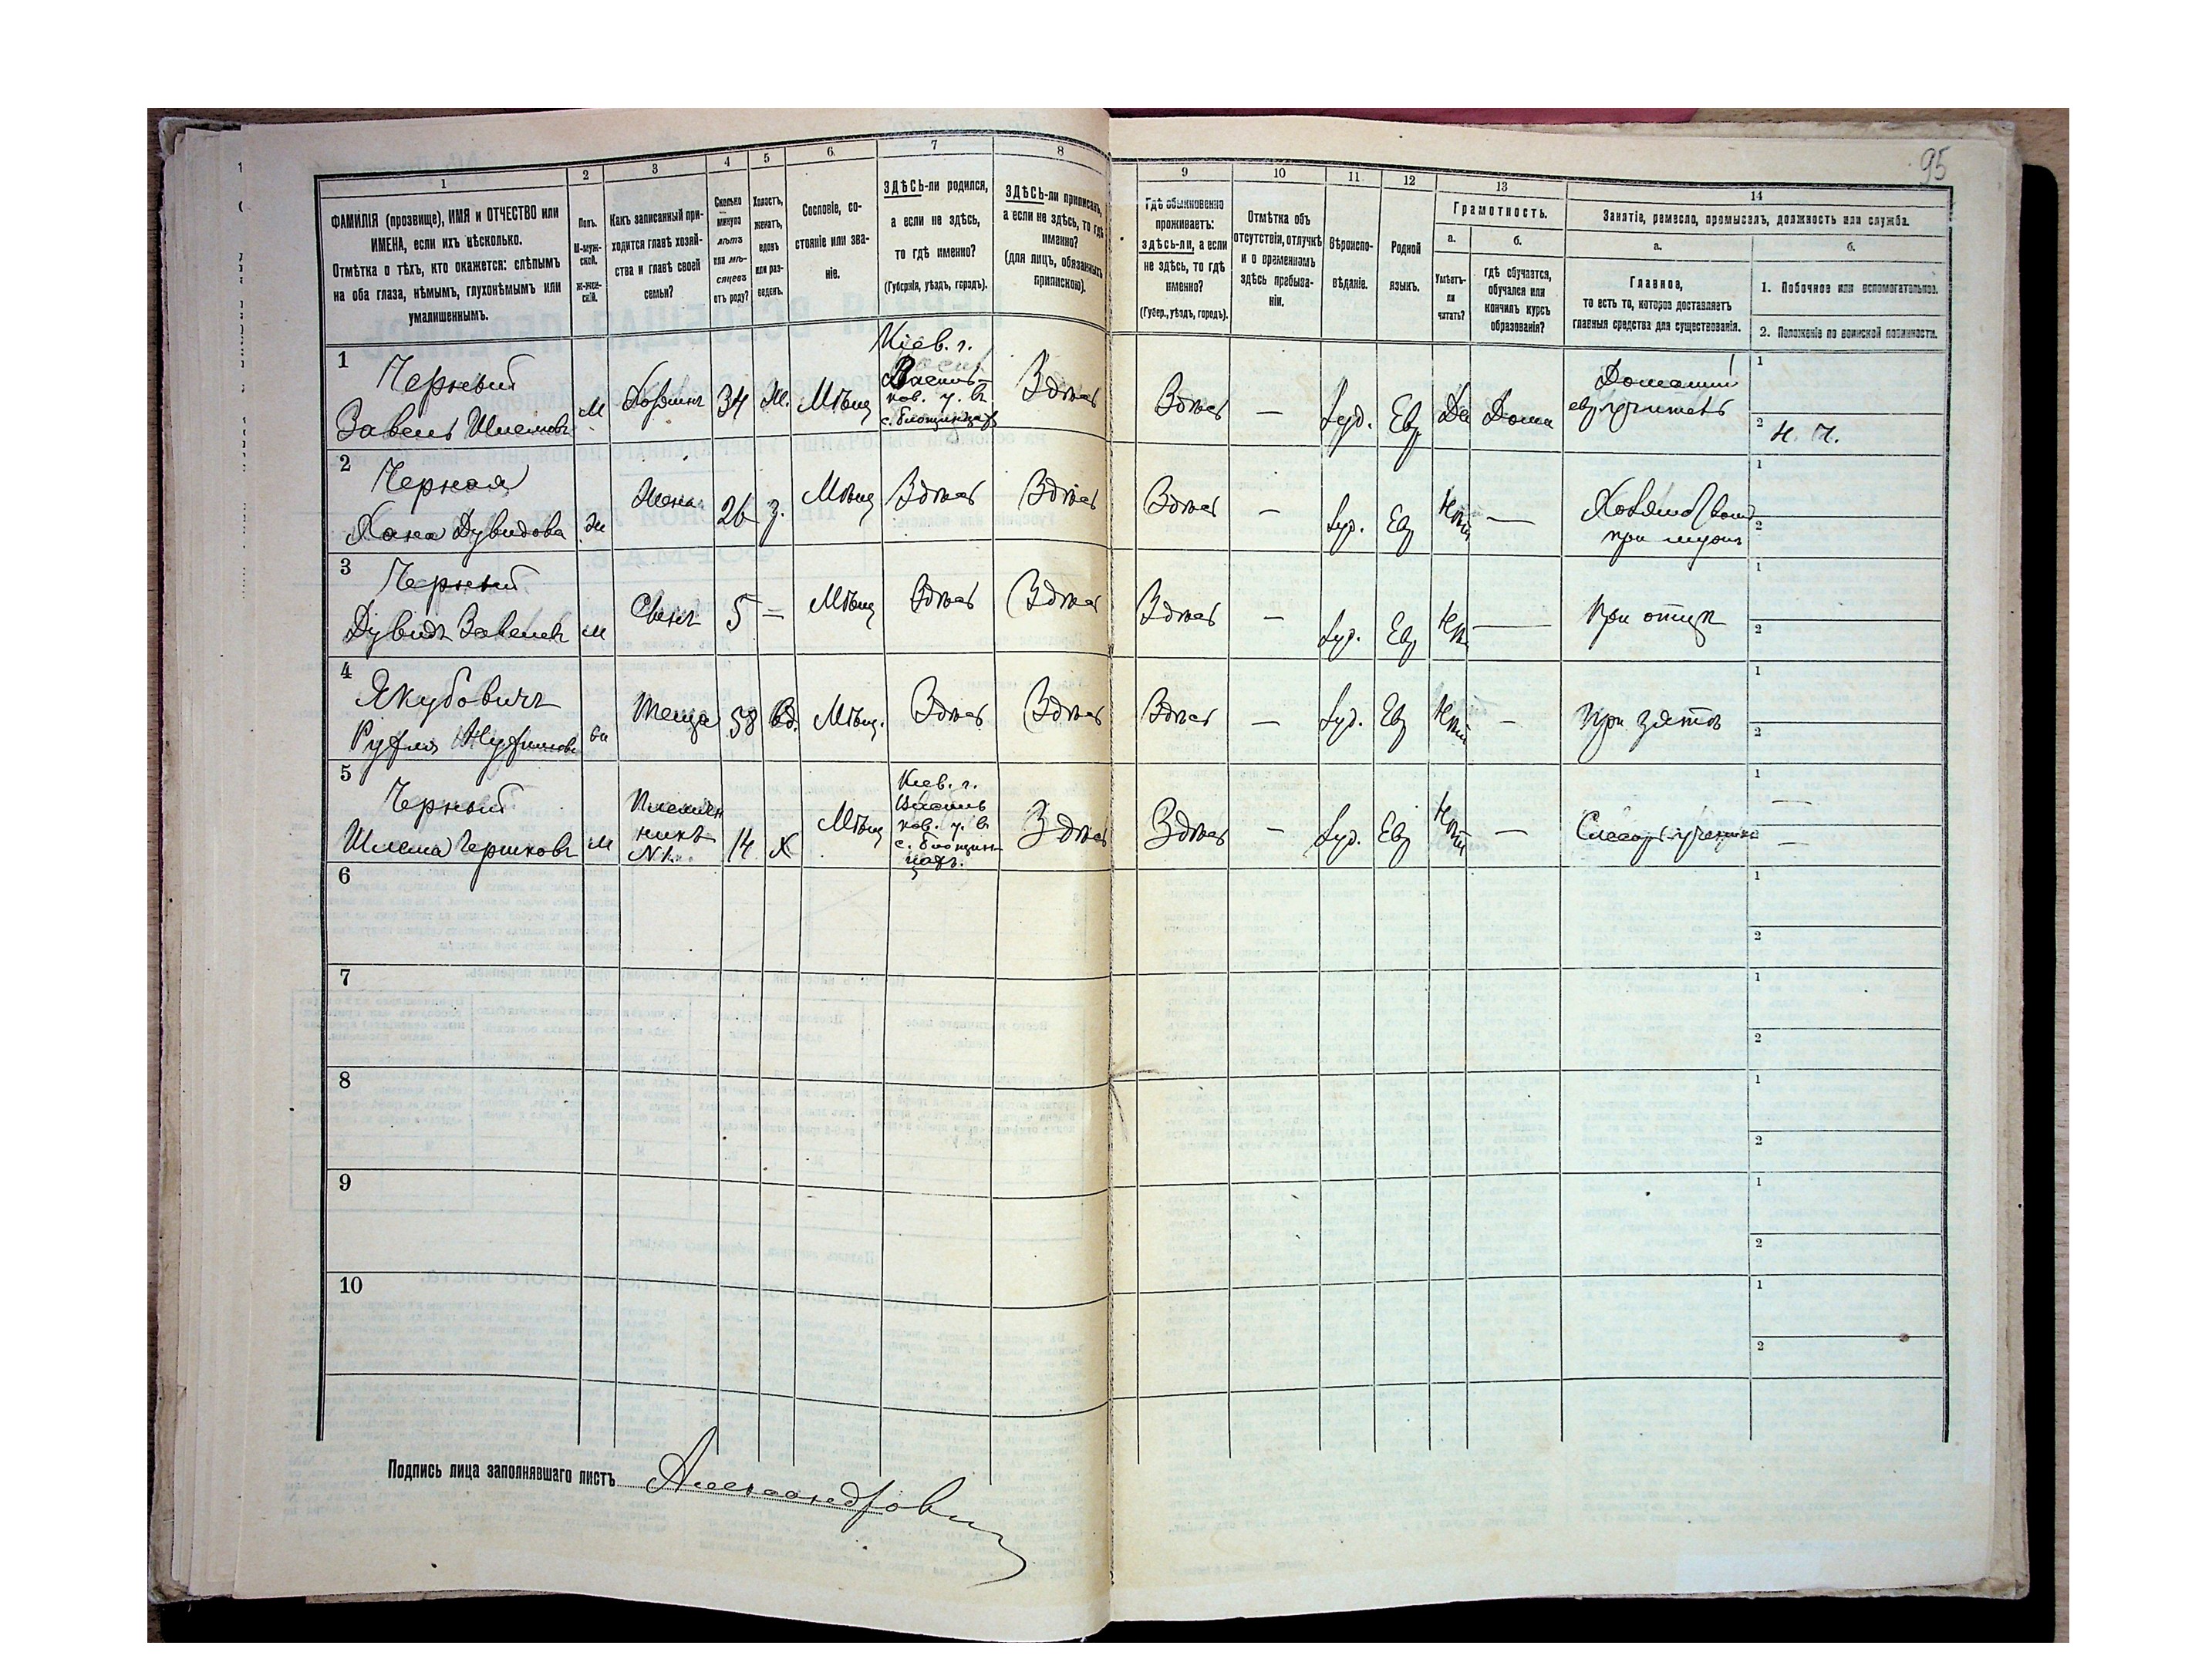 95
1 2 3 4 5 6. 7 8 9 10 11 12 13 14
ФАМИЛІЯ (прозвище), ИМЯ и ОТЧЕСТВО или
ИМЕНА, если ихъ нѣсколько.
Отмѣтка о тѣхъ, кто окажется: слѣпымъ
на оба глаза, нѣмымъ, глухонѣмымъ или
умалишеннымъ.
Полъ.
М-муж-
ской.
Ж-жен-
скій.
Какъ записанный при-
ходится главѣ хозяй-
ства и главѣ своей
семьи?
Сколько
минуло
лѣтъ
или мѣ-
сяцевъ
отъ роду?
Холостъ,
женатъ,
вдовъ
или раз-
веденъ.
Сословіе, со-
стояніе или зва-
ніе.
ЗДѢСЬ-ли родился,
а если не здѣсь,
то гдѣ именно?
(Губернія, уѣздъ, городъ).
ЗДѢСЬ-ли приписанъ,
а если не здѣсь, то гдѣ
именно?
(для лицъ, обязанныхъ
припискою).
Гдѣ обыкновенно
проживаетъ:
здѣсь-ли, а если
не здѣсь, то гдѣ
именно?
(Губер., уѣздъ, городъ).
Отмѣтка объ
отсутствіи, отлучкѣ
и о временномъ
здѣсь пребыва-
ніи.
Вѣроиспо-
вѣданіе.
Родной
языкъ.
Грамотность.
а.
Умѣетъ-
ли
читать?
б.
гдѣ обучается,
обучался или
кончилъ курсъ
образованія?
Занятіе, ремесло, промыселъ, должность или служба.
а.
Главное,
то есть то, которое доставляетъ
главныя средства для существованія.
б.
1. Побочное или вспомогательное.
2. Положеніе по воинской повинности.
1
Черный
Завель Шлемовъ
М
Хозяинъ
34
Ж.
Мѣщ
Кіев. г.
Василь-
ков. у. въ
с.
Здѣсь
Здѣсь
—
Іуд.
Евр
Да
Дома
Домашній
евр учитель
1
2 Н. Ч.
2
Черная
Хана Дувидова
Ж
Жена
26
З.
Мѣщ
Здѣсь
Здѣсь
Здѣсь
—
Іуд.
Евр
Нѣтъ
—
при мужѣ
1
2
3
Черный
Дувидъ Завелев
М
Сынъ
5
—
Мѣщ
Здѣсь
Здѣсь
Здѣсь
—
Іуд.
Евр
Нѣтъ
—
При отцѣ
1
2
4
Якубовичъ
Рухля
Теща
58
Вд.
Мѣщ.
Здѣсь
Здѣсь
Здѣсь
—
Іуд.
Евр
Нѣтъ
—
При зятѣ
1
2
5
Черный
Шлема Гершковъ
М
Племян
никъ
N 1.
14
Х
Мѣщ
Кіев. г.
Василь
ков. у. въ
с.
Здѣсь
Здѣсь
—
Іуд.
Евр
Нѣтъ
—
1 —
2 —
6
1
2
7
1
2
8
1
2
9
1
2
10
1
2
Подпись лица заполнявшаго листъ